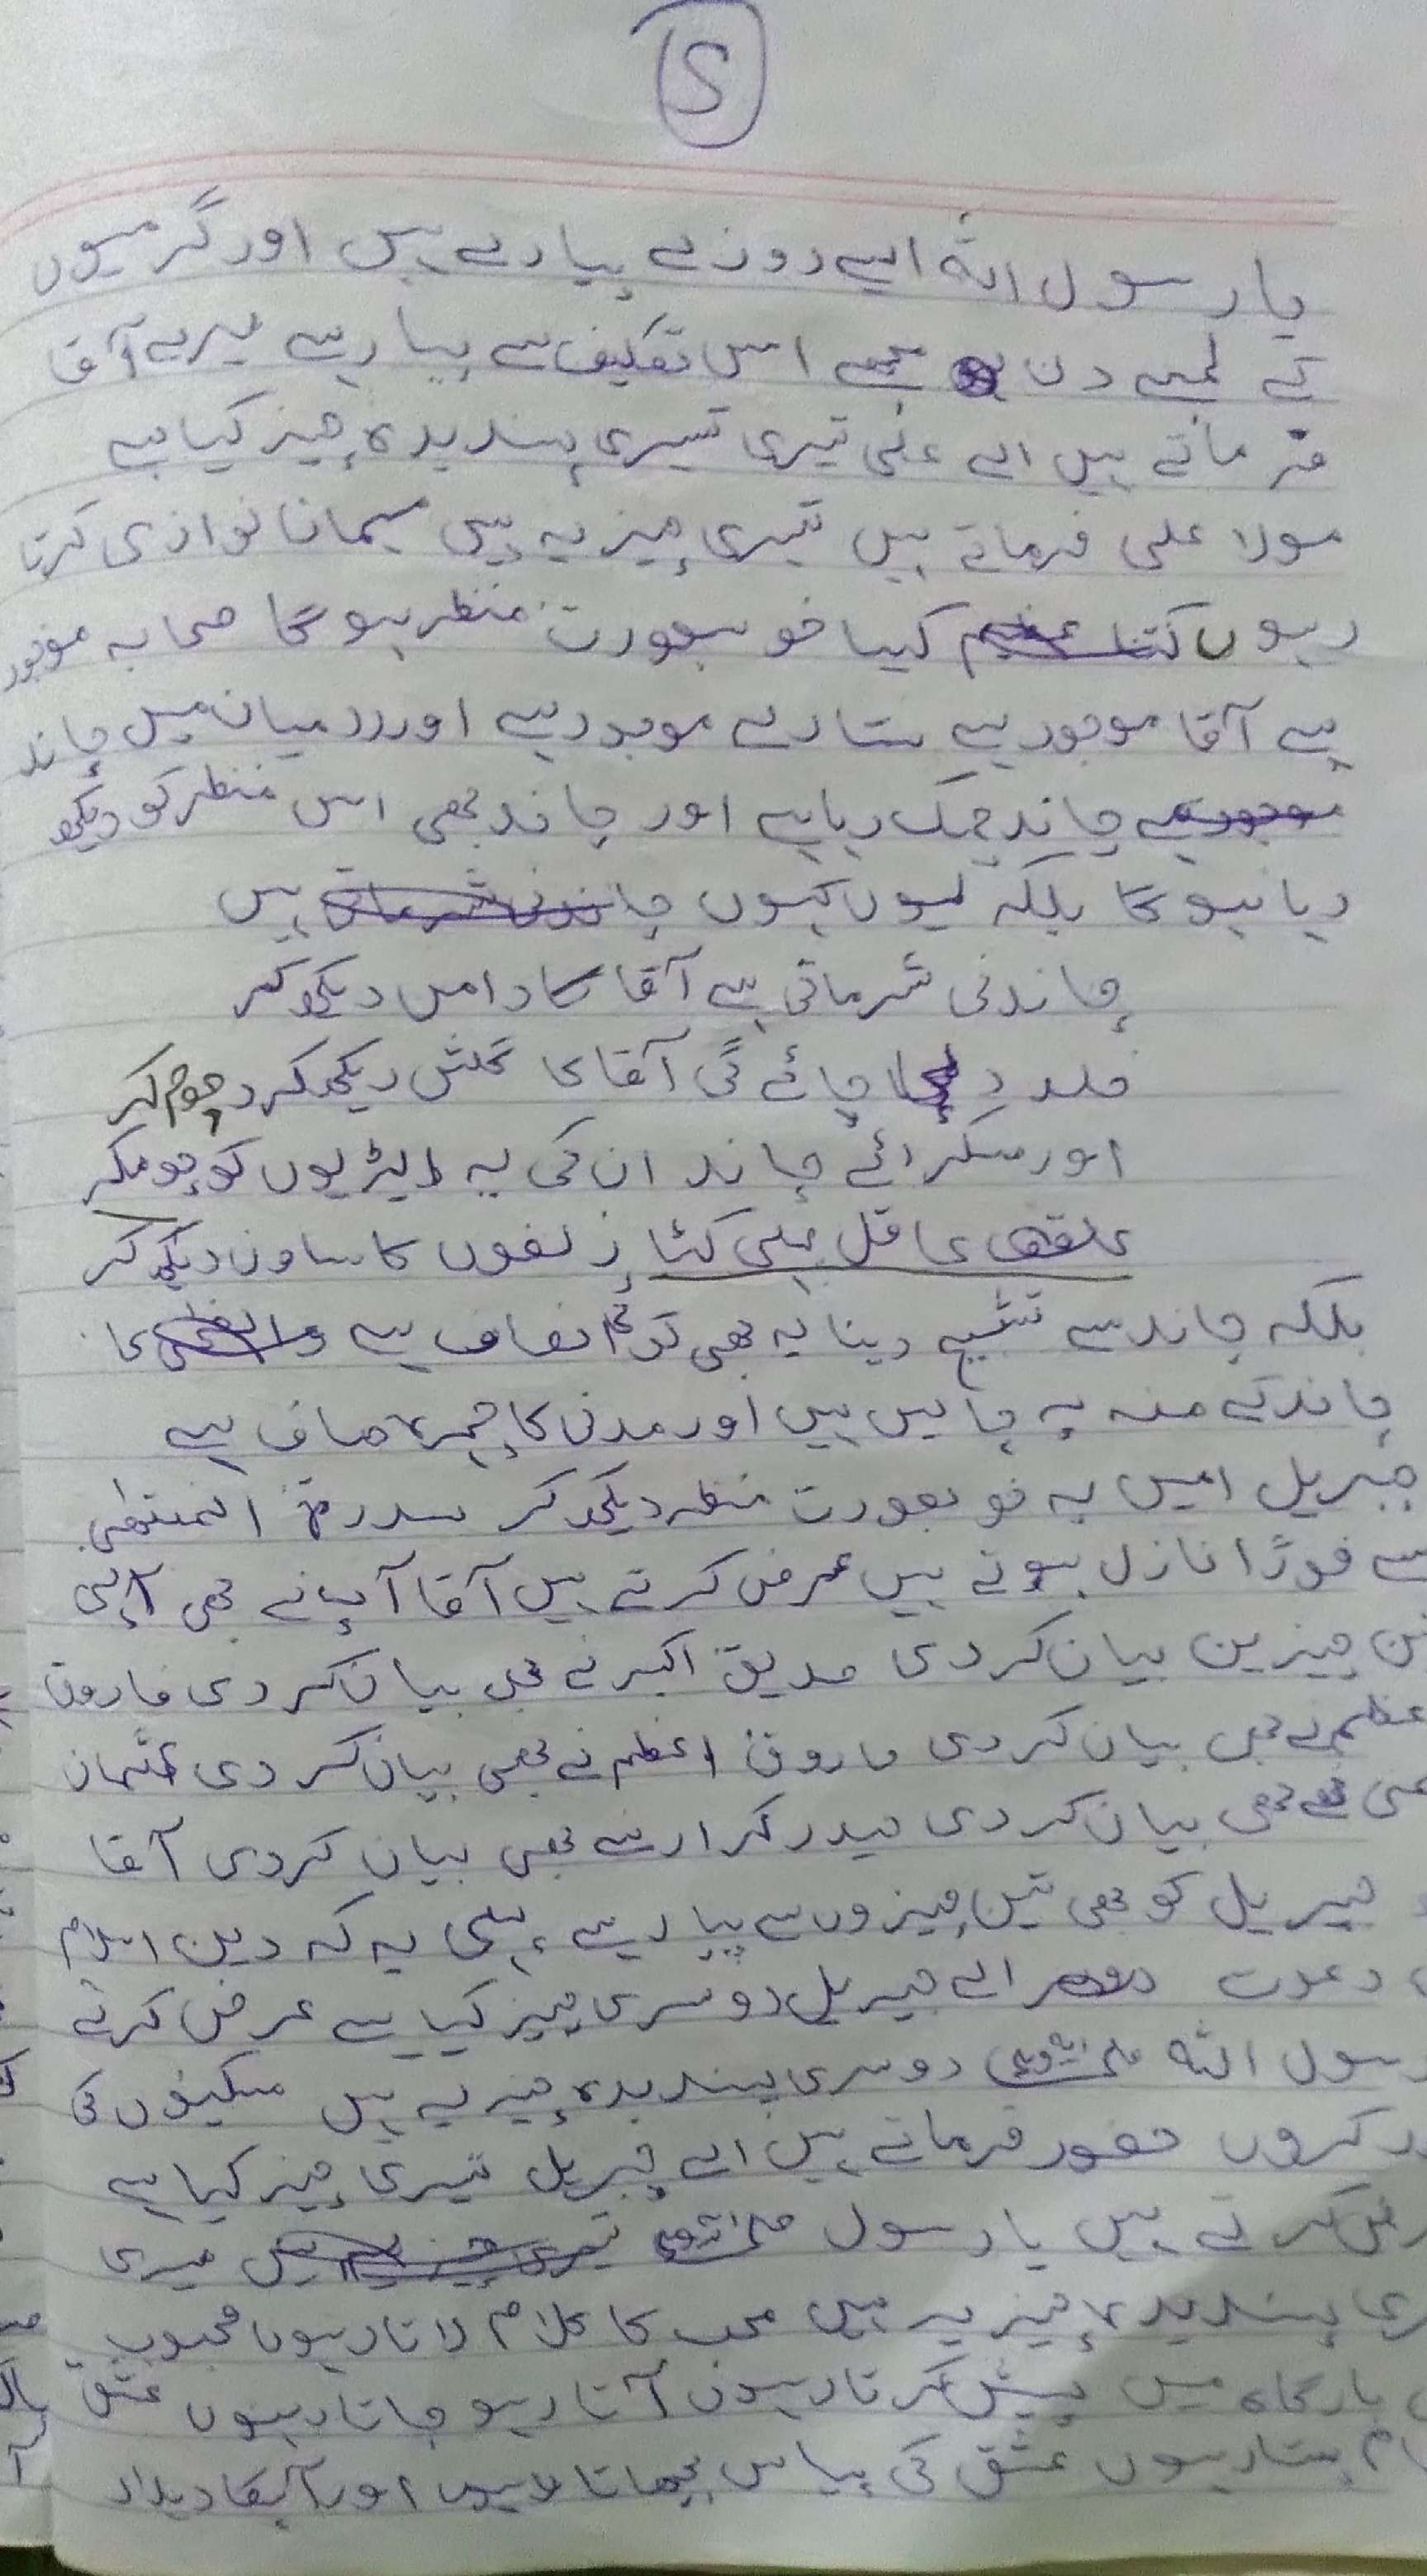 5
یا رسول اللہ ایسے روزے پیارے ہیں اور گرمیوں
کے لمبے دن مجھے اس تکلیف سے پیار ہے میرے آقا
فرماتے ہیں اے علی تیری تیسری پسندیدہ چیز کیا ہے
مولا علی فرماتے ہیں تیسری چیز یہ ہیں میمانا نوازی کرتا
رہوں کتنا عظیم کیسا خوبصورت منظر ہوگا صحابہ موجود
ہے آقا موجود ہے ستارے موجود ہے اور درمیان میں چاند
موجود ہے چاند چمک رہا ہے اور چاند بھی اس منظر کو دیکھ
رہا ہوگا بلکہ یوں کہوں چاندنی شرماتی ہیں
چاندنی شرماتی ہے آقا کا دامن دیکھ کر
خلد جائے گی آقا کا گلشن دیکھ کر جھوم کر
اور سکرائے چاند ان کی یہ ایڑیوں کو چوم کر
زلفوں کا ساون دیکھ کر
بلکہ چاند سے تشبیح دینا یہ بھی کوئی انصاف ہے کا
چاند کے منہ پہ چائیں ہیں اور مدنی کا چہرہ صاف ہے
جبریل امیں یہ خوبصورت منظر دیکھ کر سدرۃ المنتھی
سے فوراً نازل ہوتے ہیں عرض کرتے ہیں آقا آپ نے بھی اپنی
تین چیزیں بیان کر دی صدیق اکبر نے بھی بیان کر دی فاروق
اعظم نے بھی بیان کر دی فاروق اعظم نے بھی بیان کر دی عثمان
غنی نے بھی بیان کر دی حیدر کرار نے بھی بیان کر دی آقا
جبریل کو بھی تین چیزوں سے پیار ہے پہلی یہ کہ دین اسلام
دعوت اے جبریل دوسری چیز کیا ہے عرض کرتے
رسول اللہ دوسری پسندیدہ چیز یہ ہیں مسکینوں کی
کروں حضور فرماتے ہیں اے جبریل تیسری چیز کیا ہے
عرض کرتے ہیں یا رسول تیسری چیز یہ ہیں میری
پسندیدہ چیز یہ ہیں محب کا کلام لاتا رہوں محبوب
بارگاہ میں پیش کرتا رہوں آتا رہو جاتا رہوں عشق
جام پیتا رہوں عشق کی پیاس بجھاتا رہوں اور آپکا دیدار